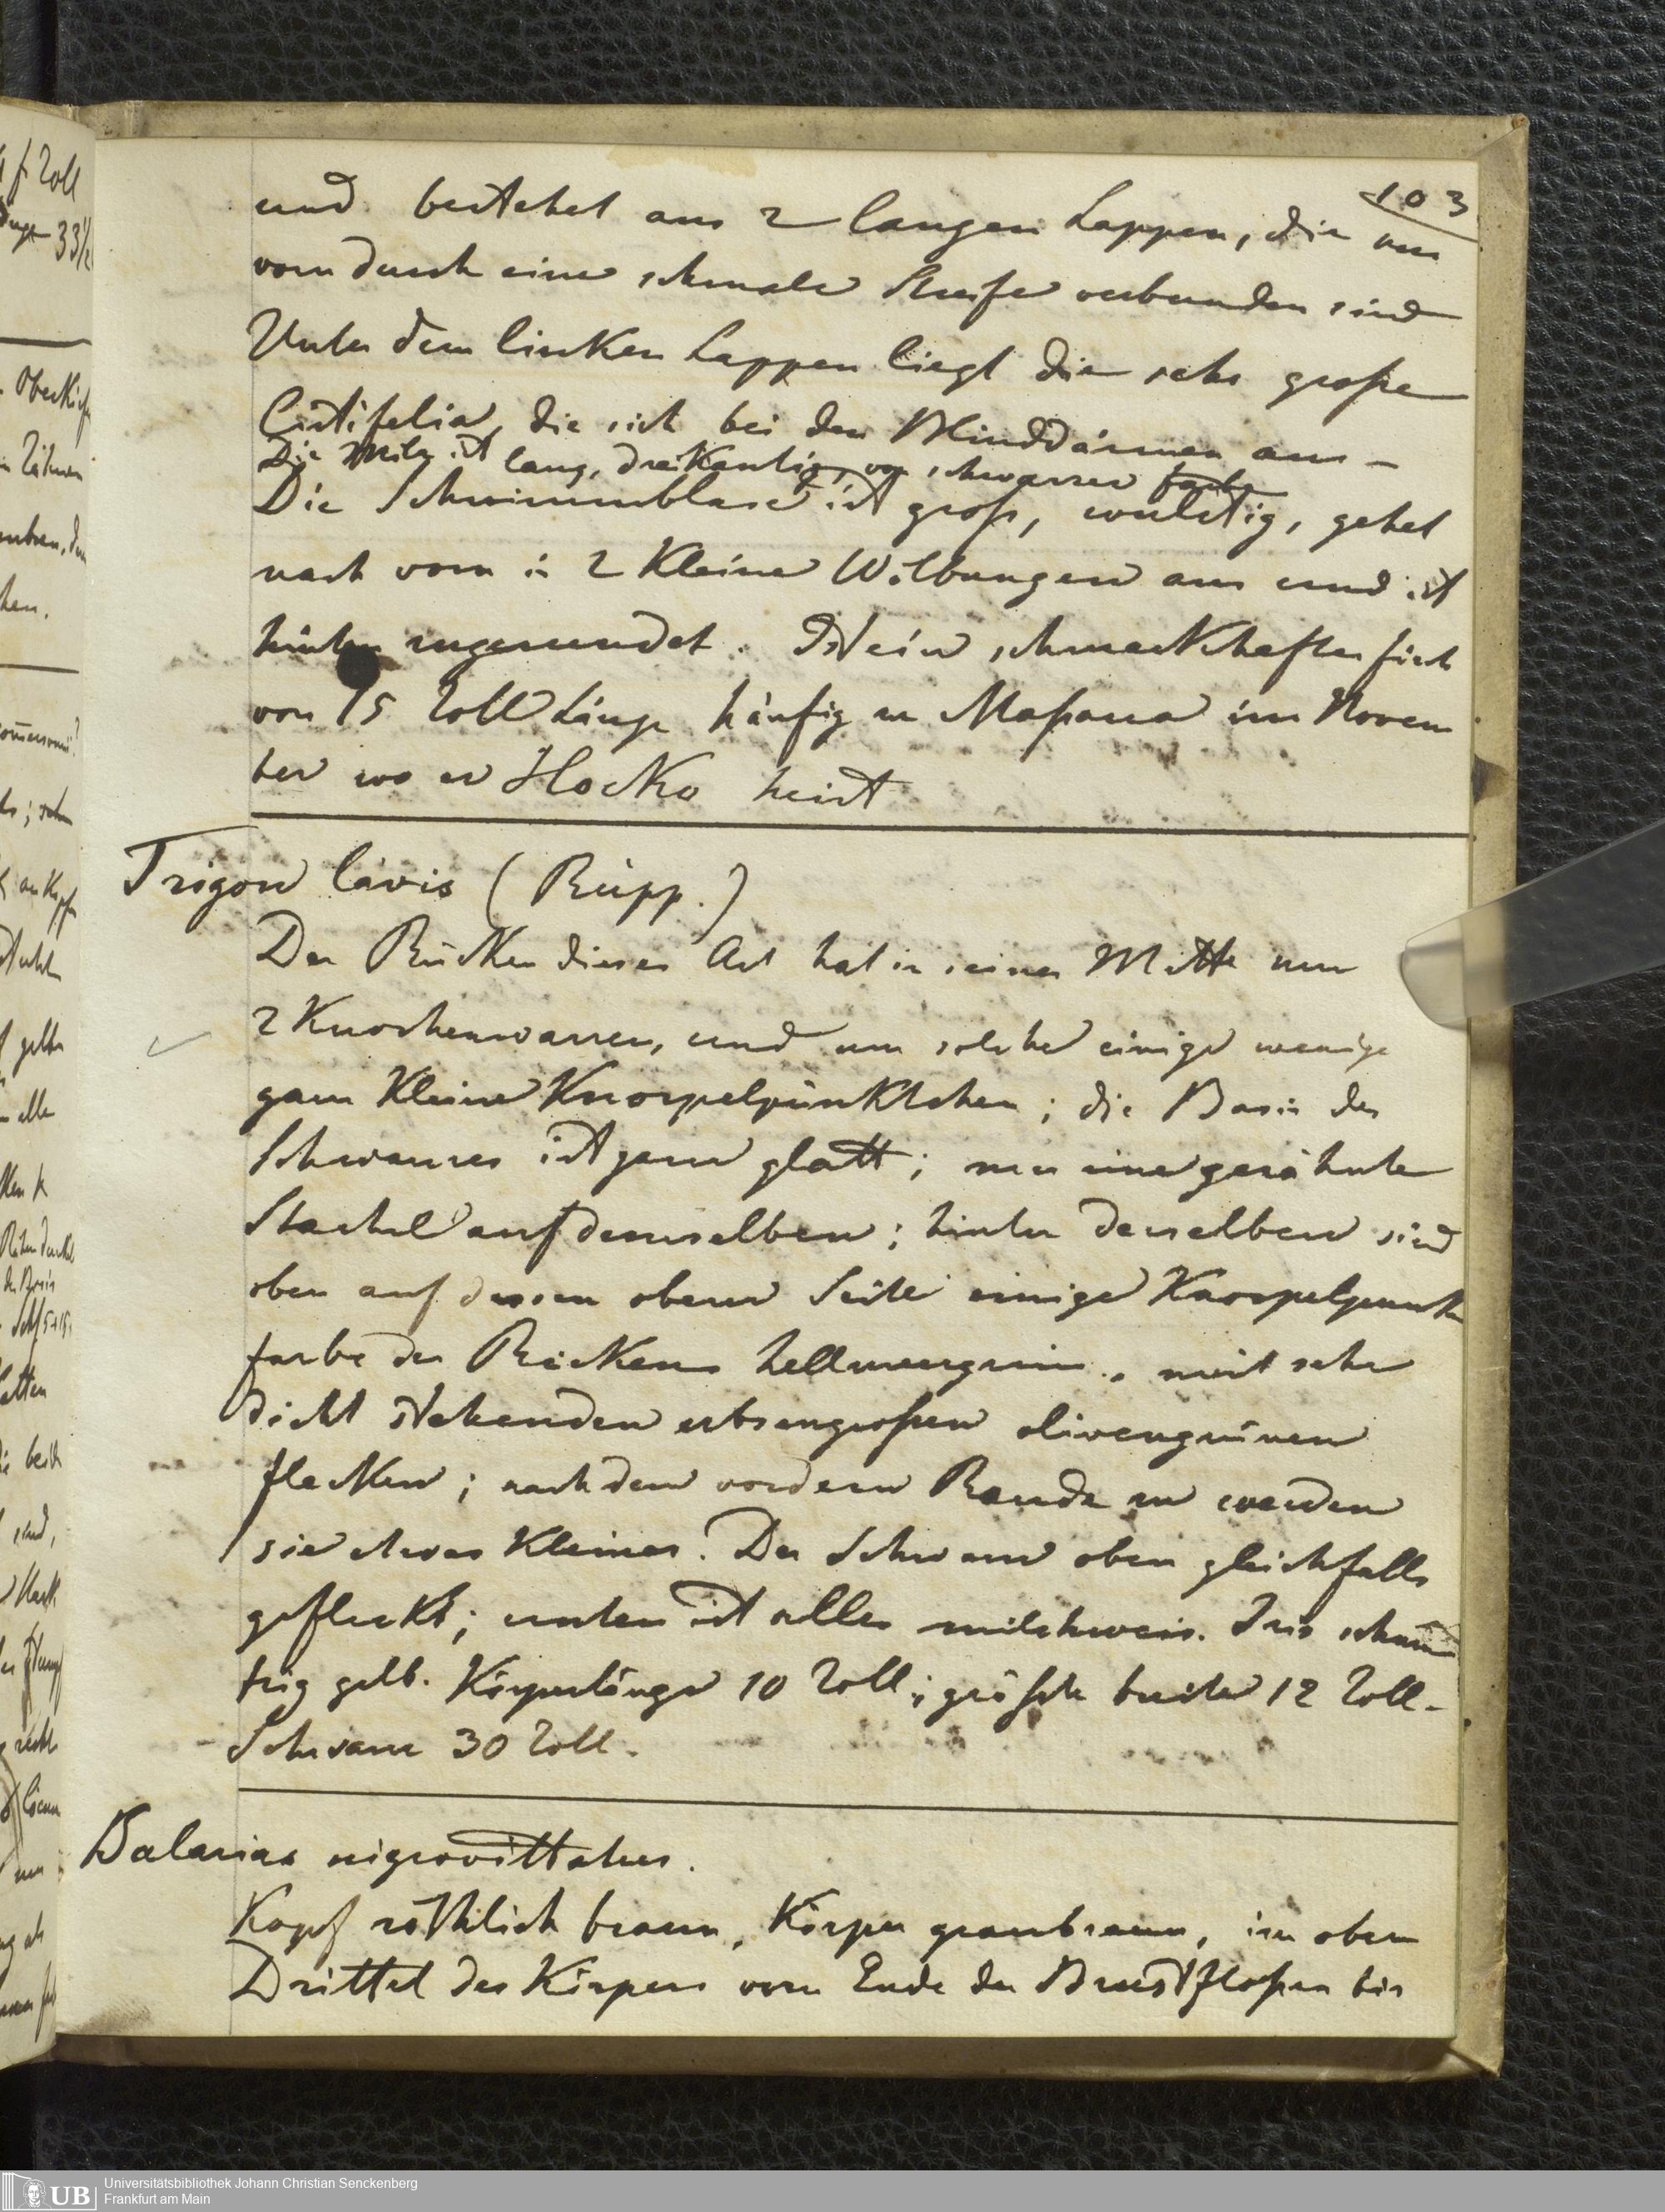 103
und bestehet aus 2 langen Lappen, die nur
vorn durch eine schmale Streife verbunden sind
Unter dem linken Lappen liegt die sehr große
Cistifelia, die sich bei den Blinddärmen aus-
Die Milz ist lang, dreikantig, von schwarzer Farbe
Die Schwimmblase ist groß, wulstig, gehet
nach vorn in 2 kleine Wölbungen aus und ist
hinten zugerundet. Ist ein schmackhafter Fisch
von 15 Zoll Länge häufig zu Maßaua im Novem
ber wo er Hocko heist
Trigon lävis (Rüpp.)
Der Rücken dieser Art hat in seiner Mitte nur
2 Knochenwarzen, und um solche einige wenige
ganz kleine Knorpelpünktchen; die Basis des
Schwanzes ist ganz glatt; nur eine gezähnte
Stachel auf demselben; hinter derselben sind
oben auf dessen oberer Seite einige Knorpelpunkte
Farbe des Rückens hellmeergrün, mit sehr
dicht stehenden erbsengroßen olivengrünen
Flecken; nach dem vordern Rande zu werden
sie etwas kleiner. Der Schwanz oben gleichfalls
gefleckt; unten ist alles milchweis. Iris schmu
tzig gelb. Körperlänge 10 Zoll; größte breite 12 Zoll-
Schwanz 30 Zoll.
Salarias nigrovittatus.
Kopf röthlich braun, Körper graubraun, im obern
Drittel des Körpers vom Ende der Brustfloßen bis
Universitätsbibliothek Johann Christian Senckenberg
Frankfurt am Main